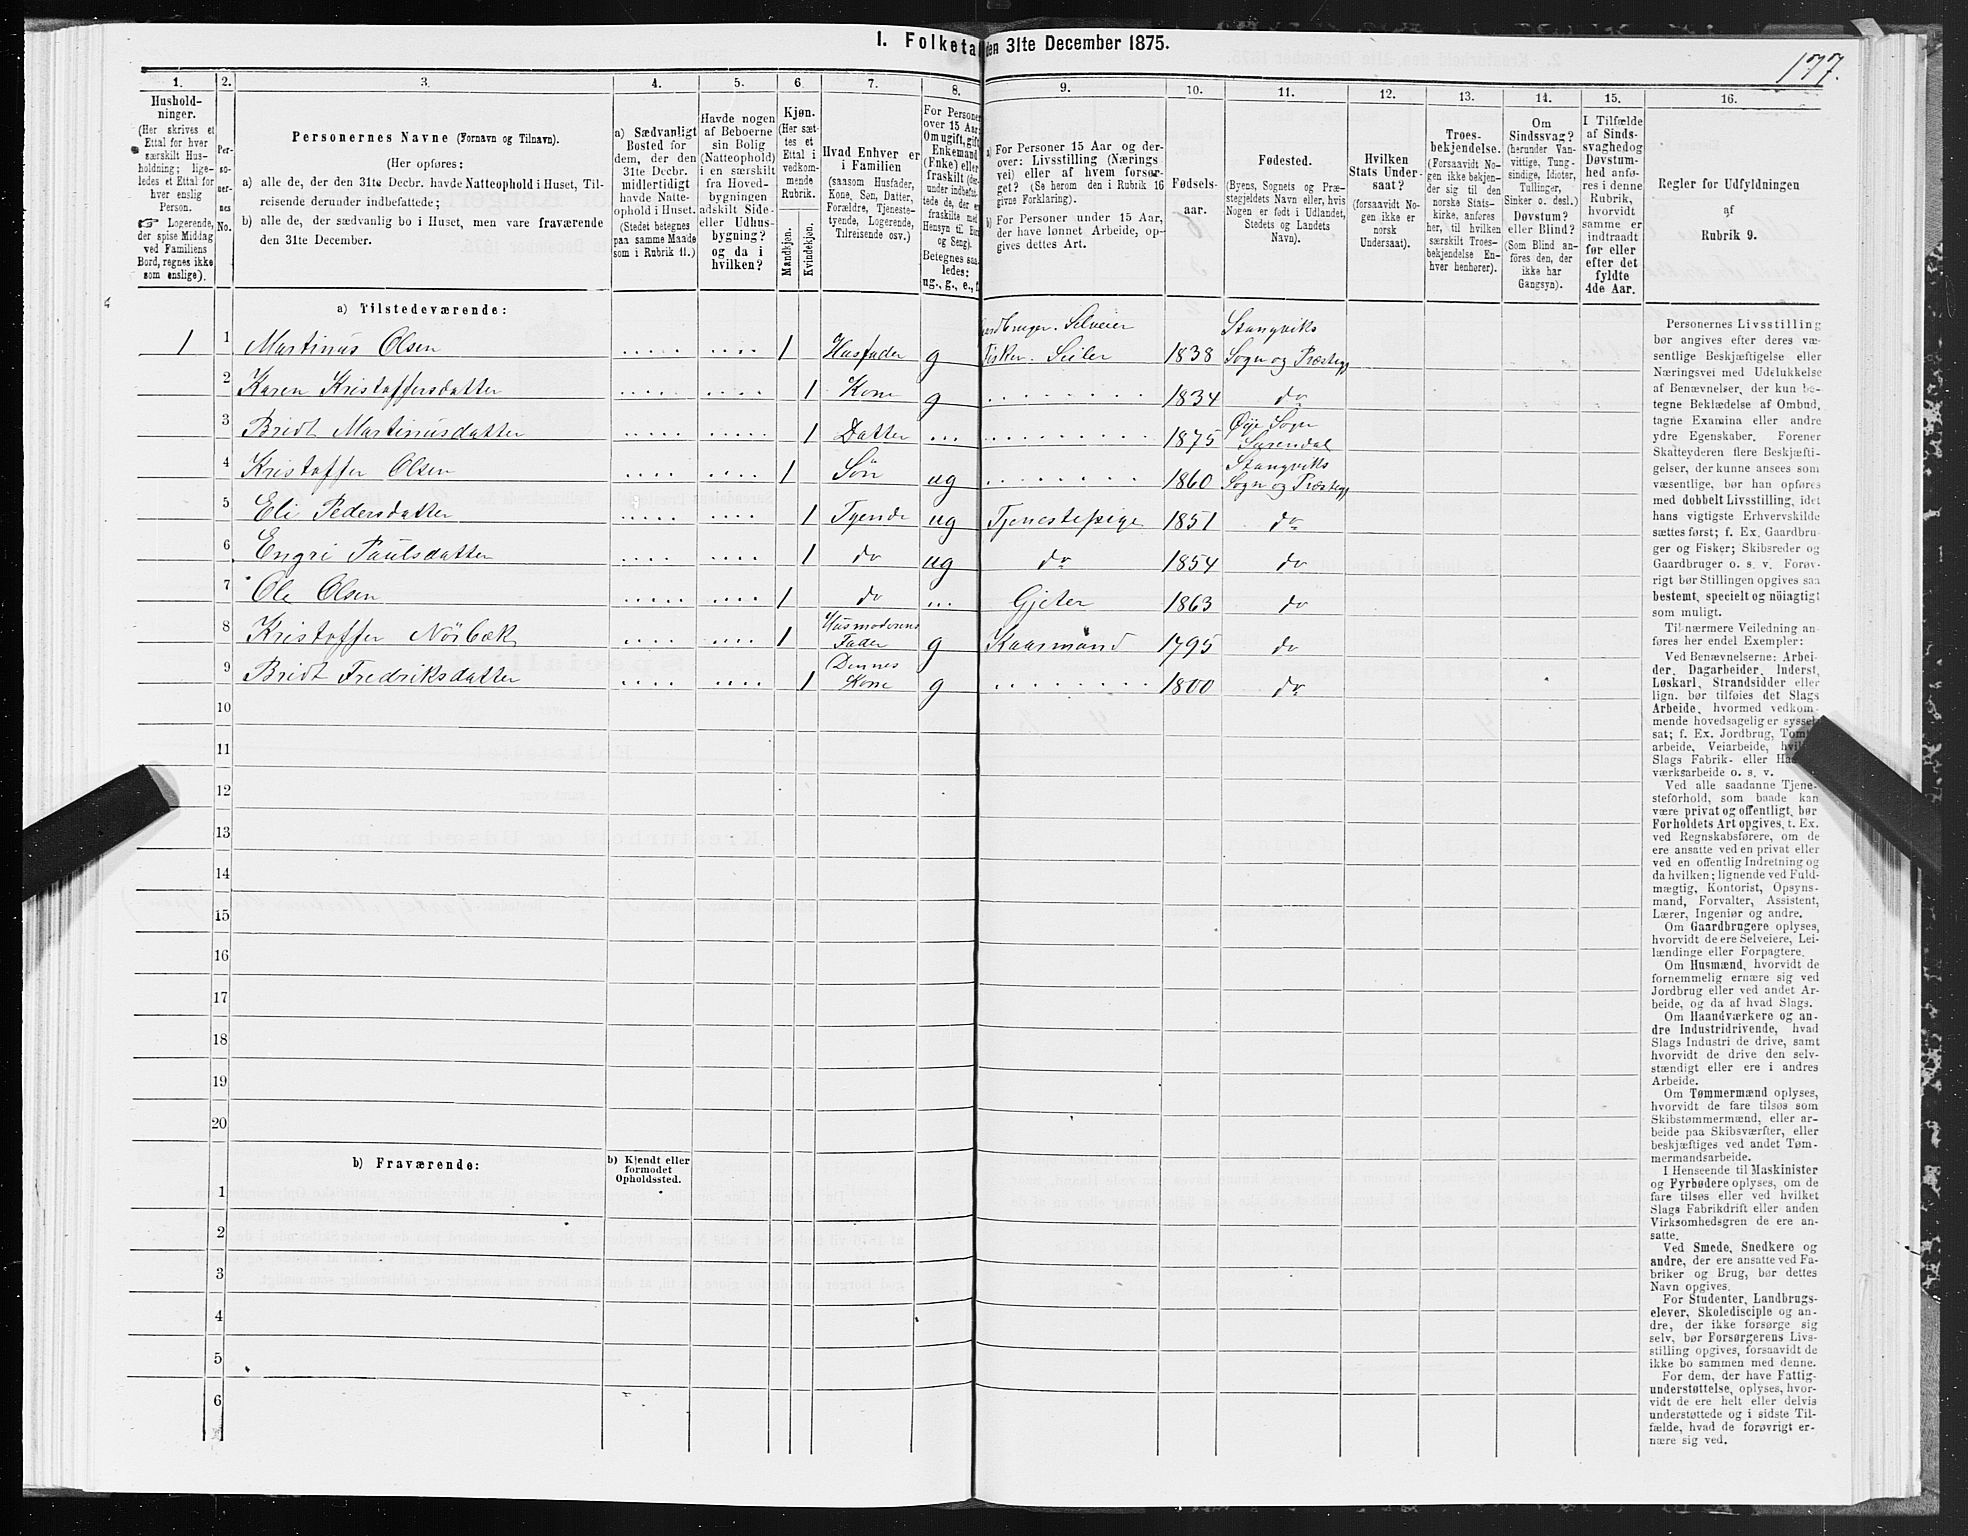 I. Folketa
den 31te December 1875.
177.
1.
Hushold-
ninger.
(Her skrives et
Ettal for hver
særskilt Hus-
holdning; lige-
ledes et Ettal for
hver enslig
Person.
Logerende,
der spise Middag
ved Familiens
Bord, regnes ikke
som enslige).
2.
Per-
so-
ner-
nes
No.
3.
Personernes Navne (Fornavn og Tilnavn).
(Her opføres:
a) alle de, der den 31te Decbr. havde Natteophold i Huset, Til-
reisende derunder indbefattede;
b) alle de, der sædvanlig bo i Huset, men vare fraværende
den 31te December.
4.
a) Sædvanligt
Bosted for
dem, der den
31te Decbr.
midlertidigt
havde Natte-
ophold i Huset.
(Stedet betegnes
paa samme Maade
som i Rubrik 11.)
5.
Havde nogen
af Beboerne
sin Bolig
(Natteophold)
i en særskilt
fra Hoved-
bygningen
adskilt Side-
eller Udhus-
bygning?
og da i
hvilken?
6.
Kjøn.
(Her sæt-
tes et
Ettal i
vedkom-
mende
Rubrik.
Mandkjøn.
Kvindekjøn.
7.
Hvad Enhver er
i Familien
(saasom Husfader,
Kone, Søn, Datter,
Forældre, Tjeneste-
tyende, Logerende,
Tilreisende osv.)
8.
For Personer
over 15 Aar:
Om ugift, gift,
Enkemand
(Enke) eller
fraskilt
ng., g., e., f.
9.
a) For Personer 15 Aar og der-
over: Livsstilling (Nærings
vei) eller af hvem forsør-
get? (Se herom den i Rubrik 16
givne Forklaring).
b) For Personer under 15 Aar,
der have lønnet Arbeide, op-
gives dettes Art.
10.
Fødsels-
aar.
11.
Fødested.
(Byens, Sognets og Præ-
stegjeldets Navn eller, hvis
Nogen er født i Udlandet,
Stedets og Landets
Navn).
12.
Hvilken
Stats Under-
saat?
(forsaavidt No-
gen ikke er
norsk
Undersaat).
13.
Troes-
bekjendelse.
(Forsaavidt No-
gen ikke bekjen-
der sig til den
norske Stats-
kirke, anføres
her, til hvilken
særskilt Troes-
bekjendelse En-
hver henhører).
14.
Om
Sindssvag?
(herunder Van-
vittige, Tung-
sindige, Idioter,
Tullinger,
Sinker o. desl.)
Døvstum?
eller Blind?
(Som Blind an-
føres den, der
ikke har
Gangsyn).
15.
I Tilfælde
af Sinds-
svaghed og
Døvstum-
hed anfø-
res i denne
Rubrik,
hvorvidt
samme er
indtraadt
før eller
efter det
fyldte
4de Aar.
16.
Regler for Udfyldningen
af
Rubrik 9.
a) Tilstedeværende:
1 1 Martinus Olsen ..... ..... 1 Husfader g Gaardbruger. Selveier Fisker. Seiler 1838 Stangviks Sogn og Præstegj
2 Karen Kristoffersdatter ..... ..... 1 Kone g ........ 1834 do
3 Bridt Martinusdatter ..... ..... 1 Datter ... ........ 1875 Øije Sogn Surendal
4 Kristoffer Olsen .... ..... 1 Søn ug ........ 1860 Stangviks Sogn og Præstegj
5 Eli Pedersdatter ..... ..... 1 Tyende ug Tjenestepige 1851 do
6 Engri Paulsdatter ..... ..... 1 do ug do 1854 do
7 Ole Olsen ..... ..... 1 do ... Gjeter 1863 do
8 Kristoffer Nörbæk .... ..... 1 Husmoderens Fader g Kaarmand 1795 do
9 Bridt Fredriksdatter ..... .... 1 Dennes Kone g ........ 1800 do
10
11
12
13
14
15
16
17
18
19
20
b) Fraværende:
b) Kjendt eller
formodet
Opholdssted.
1
2
3
4
5
6
Personernes Livsstilling
bør angives efter deres væ-
sentlige Beskjæftigelse eller
Næringsvei med Udelukkelse
af Benævnelser, der kun be-
tegne Beklædelse af Ombud,
tagne Examina eller andre
ydre Egenskaber. Forener
Skatteyderen flere Beskjæfti-
gelser, der kunne ansees som
væsentlige, bør han opføres
med dobbelt Livsstilling, idet
hans vigtigste Erhvervskilde
sættes først; f. Ex. Gaardbru-
ger og Fisker; Skibsreder og
Gaardbruger o. s. v. Forøv-
rigt bør Stillingen opgives saa
bestemt, specielt og nöiagtigt
som muligt.
Til nærmere Veiledning an-
føres her endel Exempler:
Ved Benævnelserne: Arbei-
der, Dagarbeider, Inderst,
Løskarl, Strandsidder eller
lign. bør tilføies det Slags
Arbeide, hvormed vedkom-
mende hovedsagelig er syssel-
sat; f. Ex. Jordbrug, Tomt-
arbeide, Veiarbeide, hvil
Slags Fabrik- eller Ha
værksarbeide o. s. v.
Ved alle saadanne Tjene-
steforhold, som baade kan
være privat og offentligt, bør
Forholdets Art opgives, t. Ex.
ved Regnskabsførere, om de
ere ansatte ved en privat eller
ved en offentlig Indretning og
da hvilken; lignende ved Fuld-
mægtig, Kontorist, Opsyns-
mand, Forvalter, Assistent,
Lærer, Ingeniør og andre.
Om Gaardbrugere oplyses,
hvorvidt de ere Selveiere, Lei-
lændinge eller Forpagtere.
Om Husmænd, hvorvidt de
fornemmelig ernære sig ved
Jordbrug eller ved andet Ar-
beide, og da af hvad Slags.
Om Haandværkere og an-
dre Industridrivende, hvad
Slags Industri de drive, samt
hvorvidt de drive den selv-
stændigt eller ere i andres
Arbeide.
Om Tømmermænd oplyses,
hvorvidt de fare tilsøs som
Skibstømmermænd, eller ar-
beide paa Skibsværfter, eller
beskjæftiges ved andet Tøm-
mermandsarbeide.
I Henseende til Maskinister
og Fyrbødere oplyses, om de
fare tilsøs eller ved hvilket
Slags Fabrikdrift eller anden
Virksomhedsgren de ere an-
satte.
Ved Smede, Snedkere og
andre, der ere ansatte ved Fa-
briker og Brug, bør dettes
Navn opgives.
For Studenter, Landbrugs-
elever, Skoledisciple og an-
dre, der ikke forsørge sig
selv, bør Forsørgerens Livs-
stilling opgives, forsaavidt de
ikke bo sammen med denne.
For dem, der have Fattig-
understøttelse, oplyses, hvor-
vidt de ere helt eller delvis
understøttede og i sidste Til-
fælde, hvad de forøvrigt er-
nære sig ved.